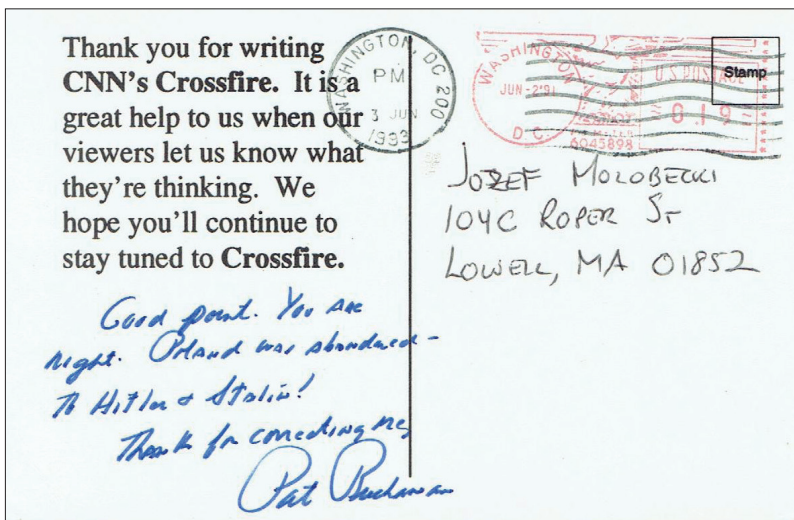 Thank you for writing
CNN's Crossfire. It is a
great help to us when our
viewers let us know what
they're thinking. We
hope you'll continue to
stay tuned to Crossfire.
Good point. You are
right. Poland was abandoned –
To Hitler & Stalin!
Thanks for correcting me,
Pat Buchanan
WASHINGTON, DC 200
PM
3 JUN
1993
WASHINGTON
JUN-2'91
D.C.
METER
6045898
U.S. POSTAGE
019
Stamp
JOZEF MOLOBECKI
104C ROPER ST
LOWELL, MA 01852